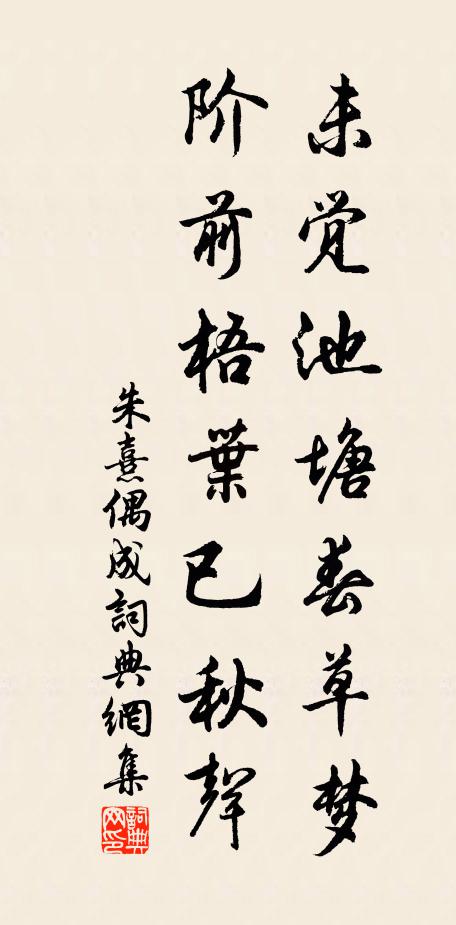 未觉池塘春草梦
阶前梧葉已秋聲
朱熹偶成詞典網集
詞典
网印